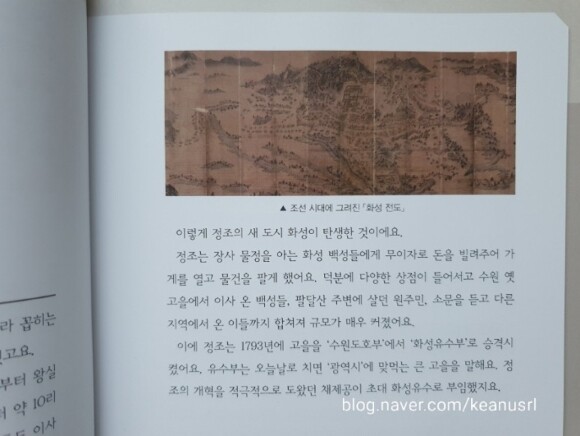 ▲ 조선 시대에 그려진 「화성 전도」
이렇게 정조의 새 도시 화성이 탄생한 것이에요.
정조는 장사 물정을 아는 화성 백성들에게 무이자로 돈을 빌려주어 가
게를 열고 물건을 팔게 했어요. 덕분에 다양한 상점이 들어서고 수원 옛
고을에서 이사 온 백성들, 팔달산 주변에 살던 원주민, 소문을 듣고 다른
지역에서 온 이들까지 합쳐져 규모가 매우 커졌어요.
이에 정조는 1793년에 고을을 '수원도호부'에서 '화성유수부'로 승격시
켰어요. 유수부는 오늘날로 치면 '광역시'에 맞먹는 큰 고을을 말해요. 정
조의 개혁을 적극적으로 도왔던 채제공이 초대 화성유수로 부임했지요.
라 꼽히는
고요.
부터 왕실
약 10리
도 이사
blog.naver.com/keanusrl